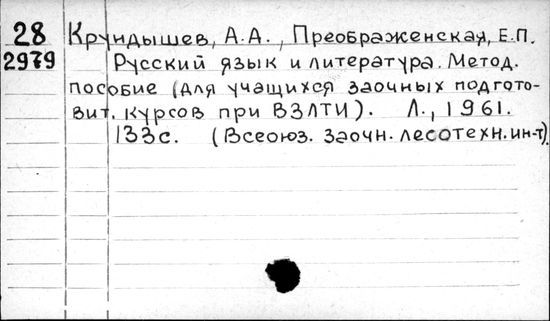 28 Крундышев, А.А., Преображенская, Е.П.
2979 Русский язык и литература. Метод.
пособие (для учащихся заочных подгото-
вит. курсов при ВЗЛТИ). Л., 1961.
133с. (Всеоюз. заочн. лесотехн. ин-т).